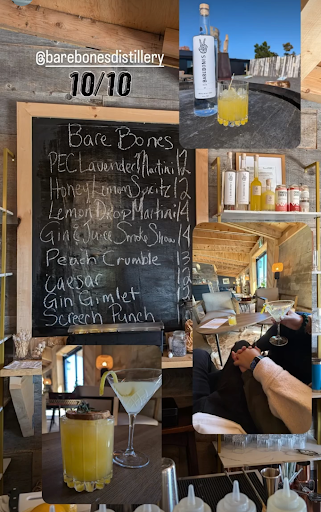 @barebonesdistillery
10/10
Bare Bones
PEC Lavender Martini 12
Honey Lemon Spritz 12
Lemon Drop Martini 14
Gin & Juice Smoke Show 14
Peach Crumble 13
Caesar
Gin Gimlet
Screech Punch
BAREBONES